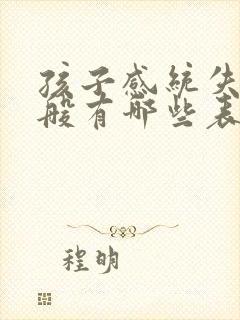 孩子感统失
般有哪些表
程明